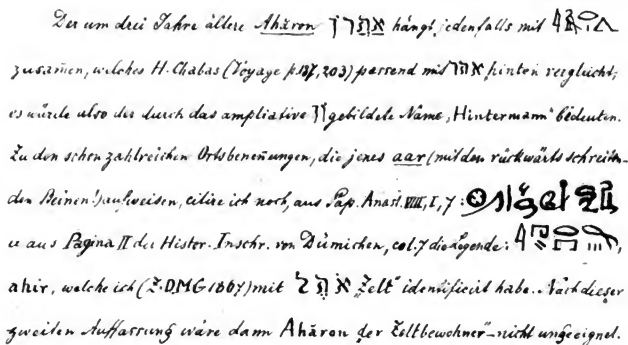 Der um drei Jahre ältere Aháron אַהֲרֹן hängt jedenfalls mit
zusam̅en, welches H. Chabas (Voyage p. 137, 203) passend mit אחר hinten vergleicht;
es würde also der durch das ampliative וֹן gebildete Name „Hintermann“ bedeuten.
Zu den schon zahlreichen Ortsbenen̅ungen, die jenes aar (mit den rückwärts schreiten-
den Beinen!) aufweisen, citire ich noch, aus Pap. Anast. VIII, I, 7:
u aus Pagina II der Histor. Inschr. von Dümichen, col. 7 die Legende:
ahir, welche ich (Z. DMG 1867) mit אֹהֶל „Zelt“ identificirt habe. Nach dieser
zweiten Auffassung wäre dann Aháron „der Zeltbewohner“ – nicht ungeeignet.